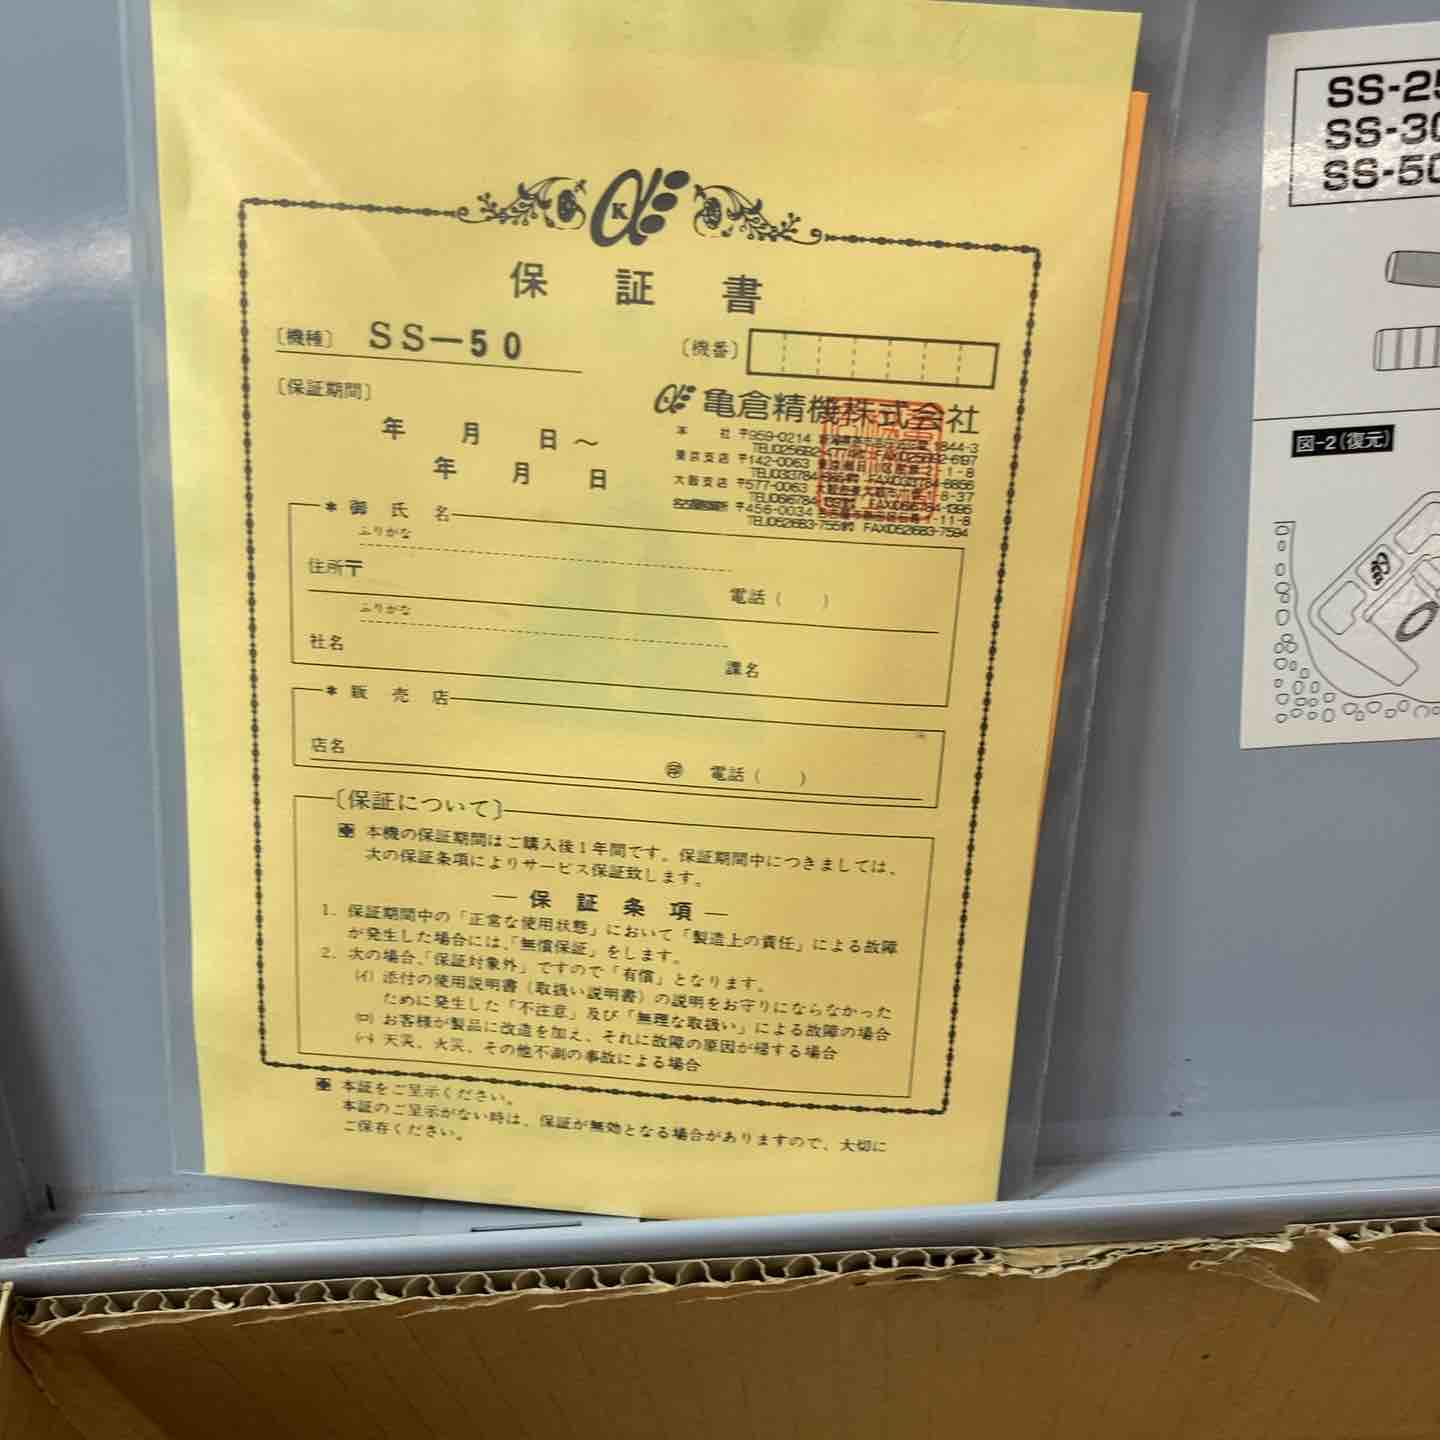 K
保証書
〔機種〕 SS-50
〔機番〕
〔保証期間〕
年 月 日～
年 月 日
亀倉精機株式会社
本社 〒959-0214 1844-3
東京支店 〒142-0063
大阪支店 〒577-0063 8-37
〒456-0034 1-11-8
＊御氏名
ふりがな
住所〒
電話( )
ふりがな
社名
課名
＊販売店
店名
㊞ 電話( )
〔保証について〕
本機の保証期間はご購入後1年間です。保証期間中につきましては、
次の保証条項によりサービス保証致します。
―保証条項―
1. 保証期間中の「正常な使用状態」において「製造上の責任」による故障
が発生した場合には、「無償保証」をします。
2. 次の場合、「保証対象外」ですので「有償」となります。
(イ) 添付の使用説明書（取扱い説明書）の説明をお守りにならなかった
ために発生した「不注意」及び「無理な取扱い」による故障の場合
(ロ) お客様が製品に改造を加え、それに故障の原因が帰する場合
(ハ) 天災、火災、その他不測の事故による場合
本証をご呈示ください。
本証のご呈示がない時は、保証が無効となる場合がありますので、大切に
ご保存ください。
SS-25
SS-30
SS-50
図-2(復元)